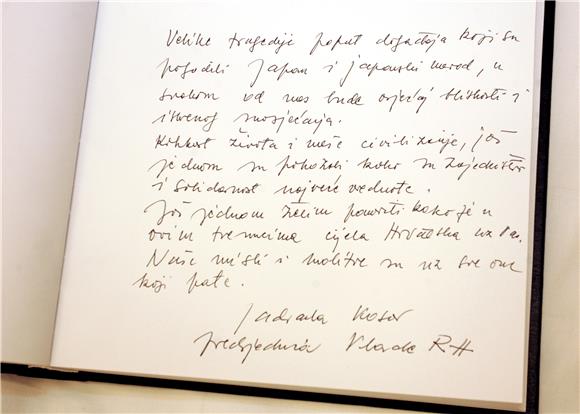 Velike tragedije poput događaja koji su
pogodili Japan i japanski narod, u
svakom od nas bude osjećaj bliskosti i
iskrenog suosjećanja.
Krhkost života i naše civilizacije, još
jednom su pokazali koliko su zajedništvo
i solidarnost najveće vrednote.
Još jednom želim ponoviti kako je u
ovim trenucima cijela Hrvatska uz Vas.
Naše misli i molitve su uz sve one
koji pate.
Jadranka Kosor
predsjednica Vlade RH